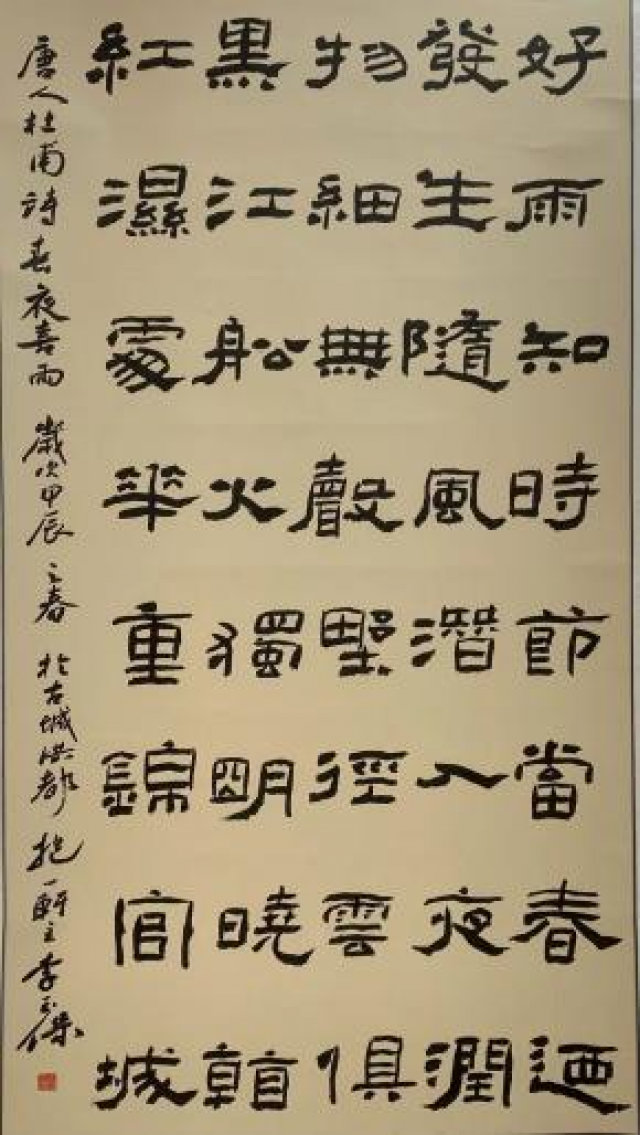 好雨知時節當春迺
發生隨風潛入夜潤
物細無聲野徑雲俱
黑江船火獨明曉看
紅濕處華重錦官城
唐人杜甫詩春夜喜雨 歲次甲辰之春 於古城洪都 抱一軒主李